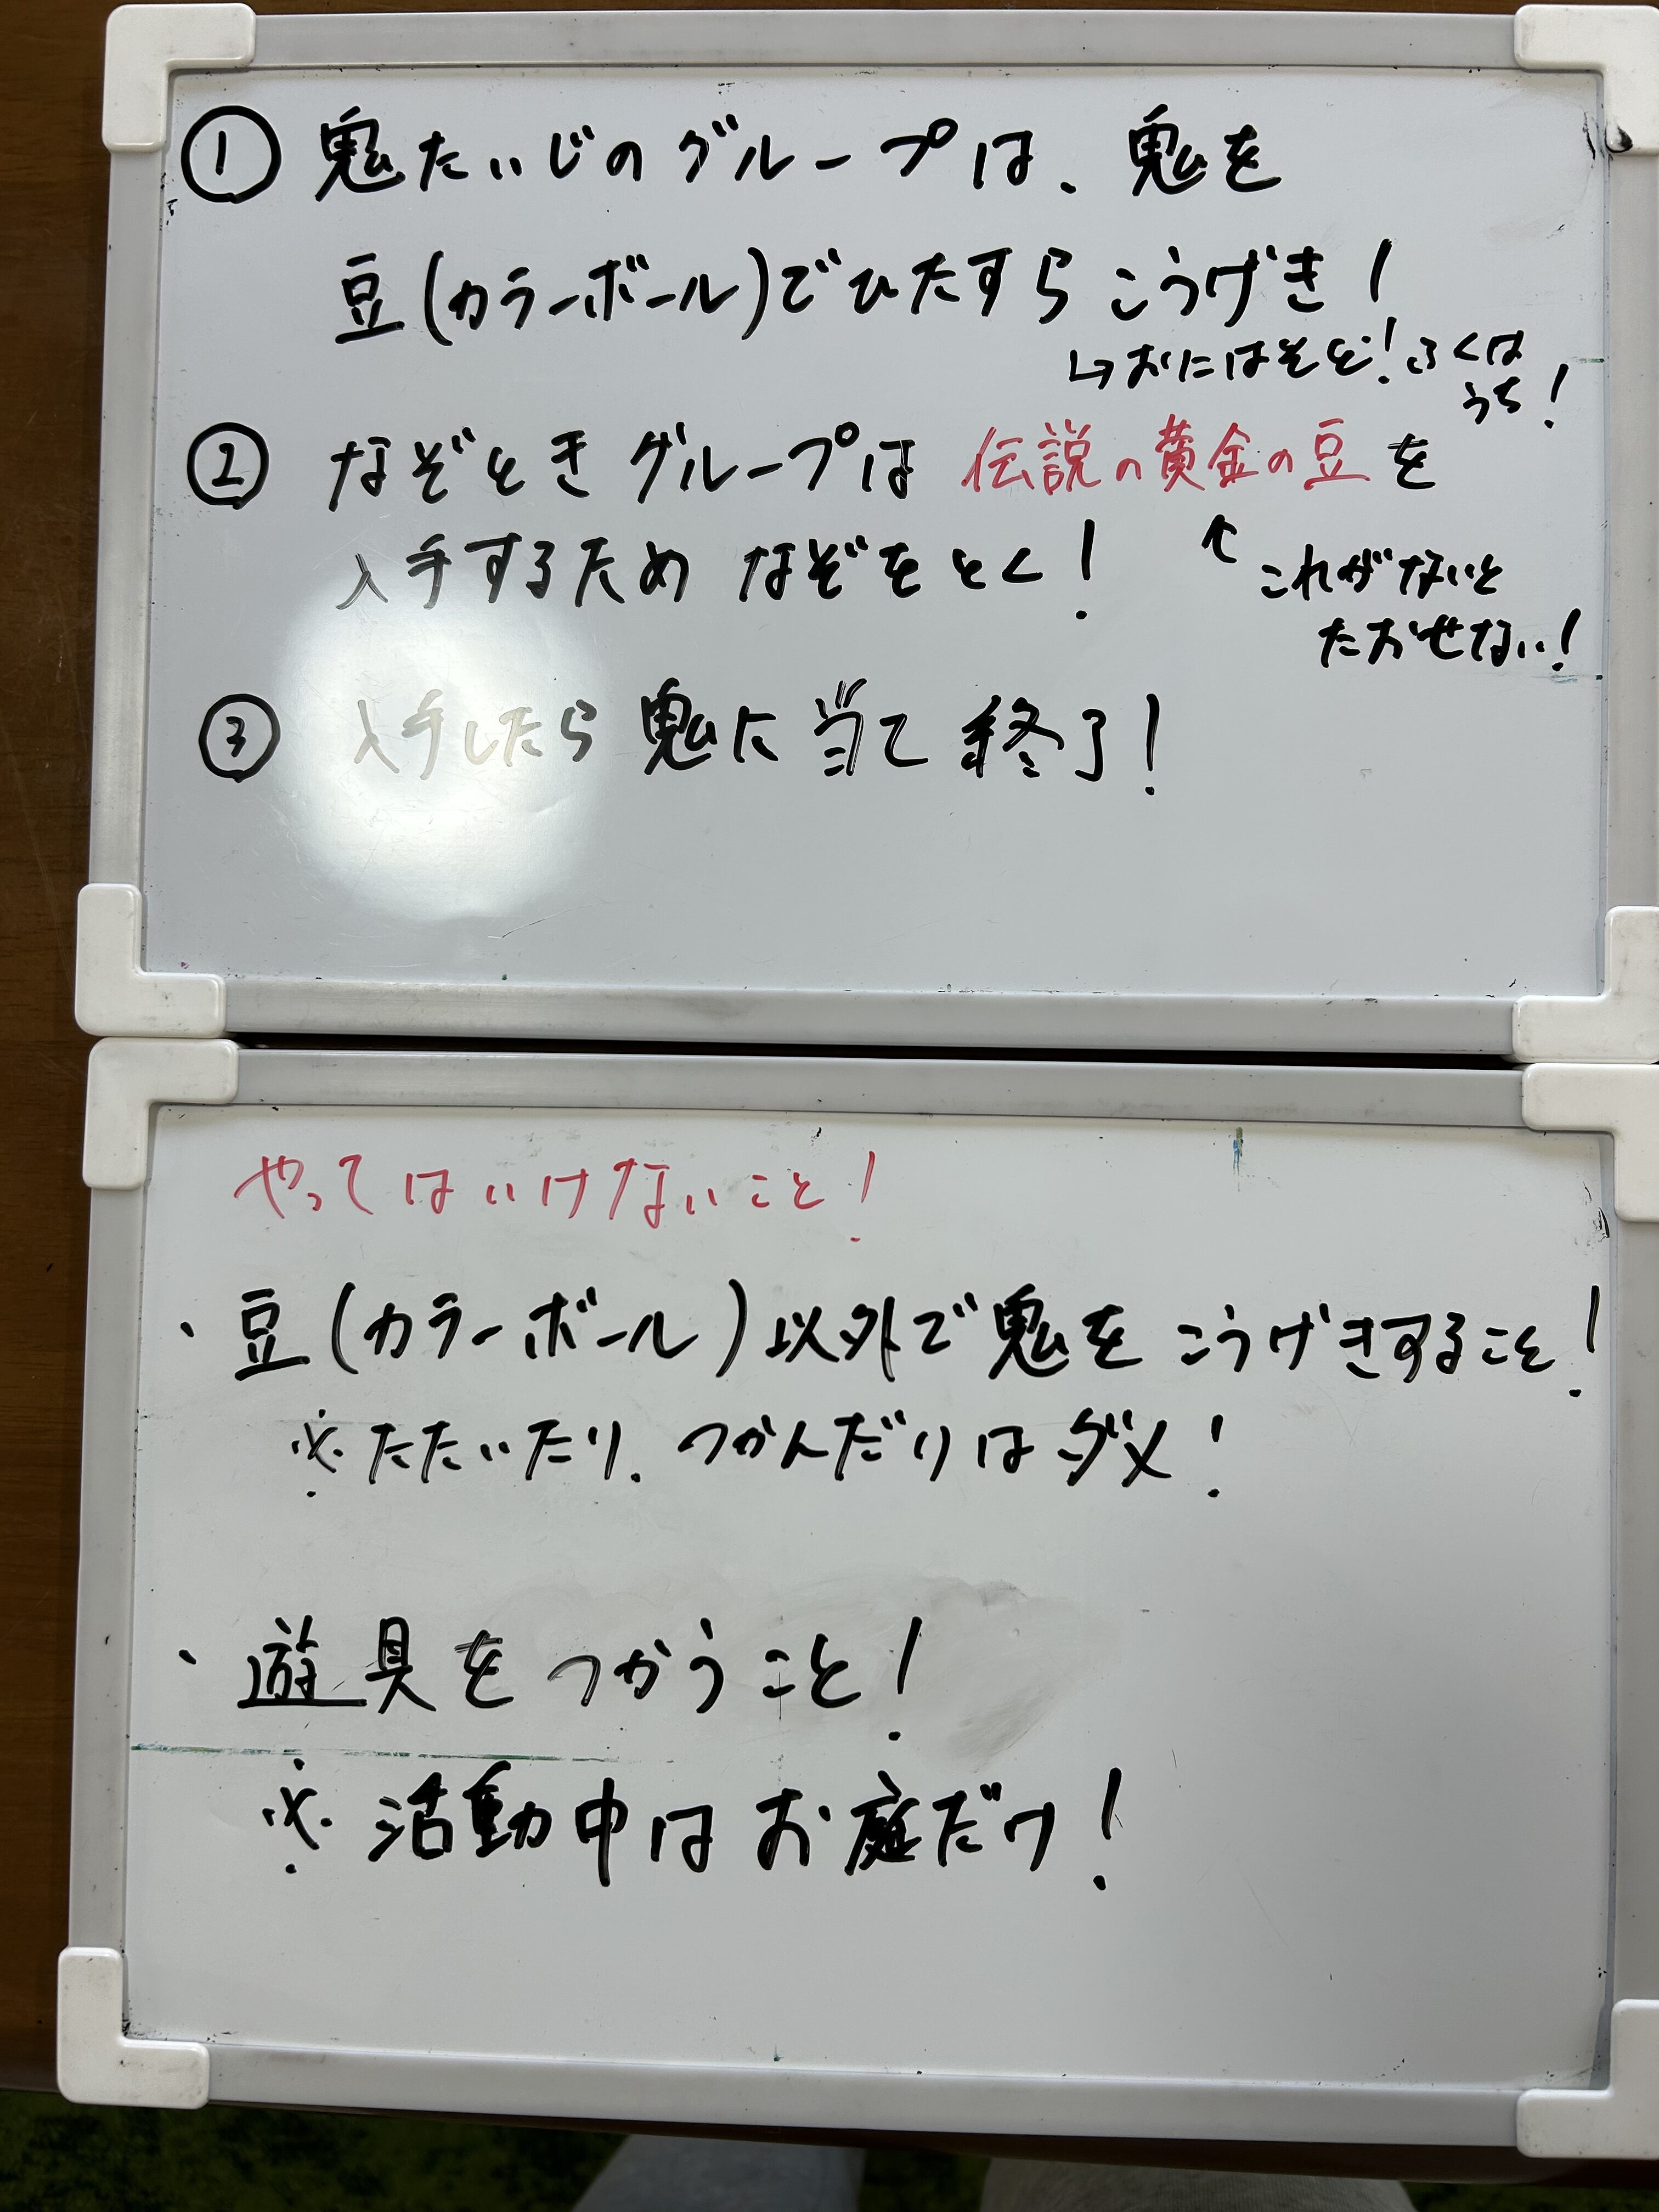 ① 鬼たいじのグループは、鬼を
豆(カラーボール)でひたすらこうげき!
↳おにはそと!ふくは
うち!
② なぞときグループは伝説の黄金の豆を
入手するためなぞをとく!
↖これがないと
たおせない!
③ 入手したら鬼に当て終了!
やってはいけないこと!
・豆(カラーボール)以外で鬼をこうげきすること!
※たたいたり、つかんだりはダメ!
・遊具をつかうこと!
※活動中はお庭だけ!